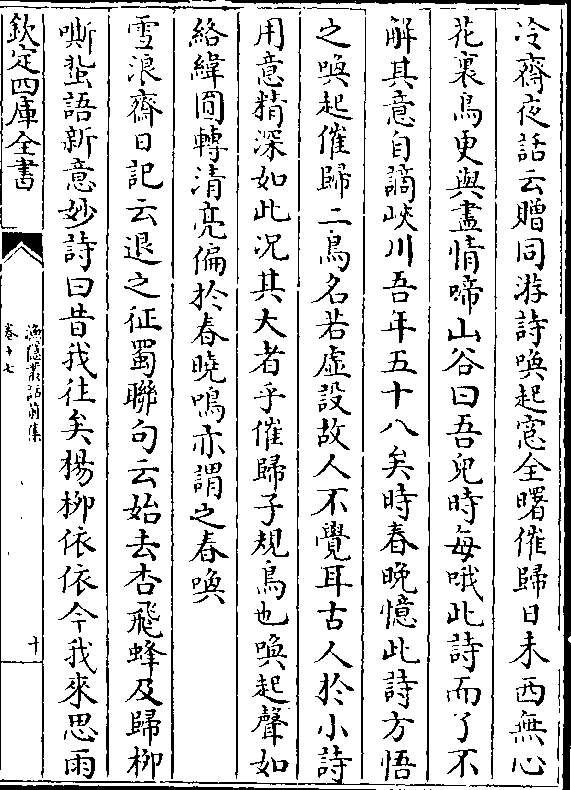 冷齋夜話云贈同游詩喚起窓全曙催歸日未西無心
花裏鳥更與盡情啼山谷曰吾兒時每哦此詩而了不
解其意自謫峽川吾年五十八矣時春晚憶此詩方悟
之喚起催歸二鳥名若虛設故人不覺耳古人於小詩
用意精深如此况其大者乎催歸子規鳥也喚起聲如
絡緯圓轉清亮偏於春曉鳴亦謂之春喚
雪浪齋日記云退之征蜀聯句云始去杏飛蜂及歸柳
嘶蜇語新意妙詩曰昔我往矣楊柳依依今我來思雨
欽定四庫全書
漁隱叢話前集
卷十七
十